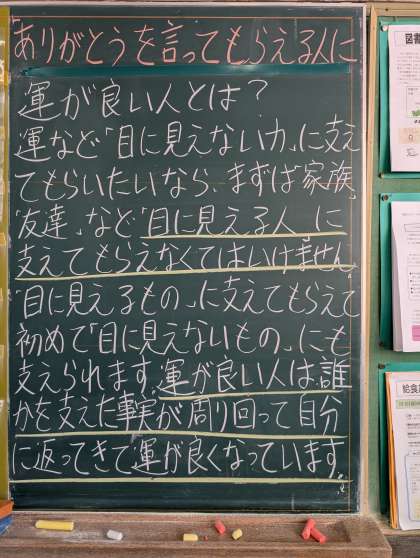 「ありがとうを言ってもらえる人に
運が良い人とは？
運など「目に見えない力」に支え
てもらいたいなら、まずは「家族
「友達」など「目に見える人」に
支えてもらえなくてはいけません
「目に見えるもの」に支えてもらえて
初めて「目に見えないもの」にも
支えられます。運が良い人は、誰
かを支えた事実が周り回って自分
に返ってきて運が良くなっています。
図書
給食